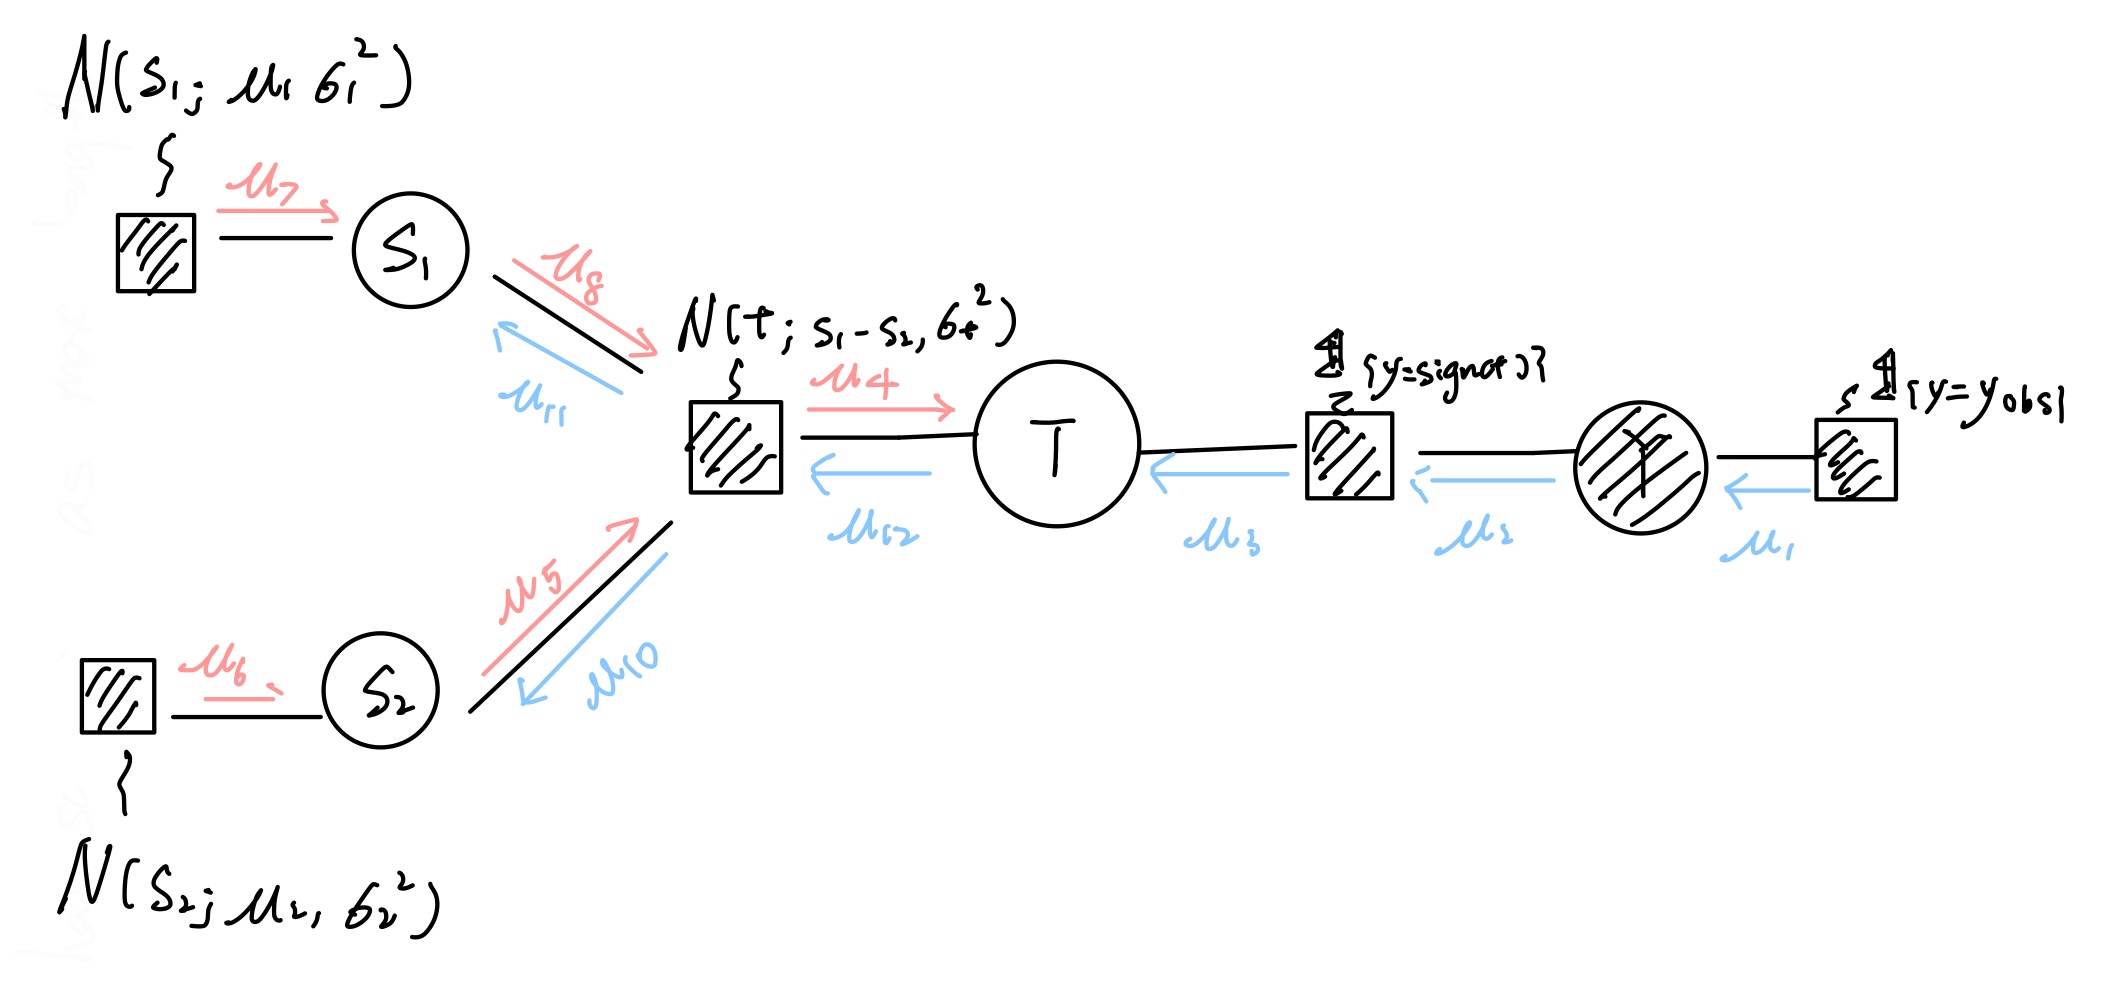 N(s₁; μ₁ σ₁²)
μ₇
S₁
μ₈
μ₁₁
N(t; s₁-s₂, σₜ²)
μ₄
T
μ₁₂
μ₃
𝟙{y=sign(t)}
μ₂
Y
𝟙{y=yobs}
μ₁
μ₅
μ₁₀
μ₆
S₂
N(s₂; μ₂, σ₂²)